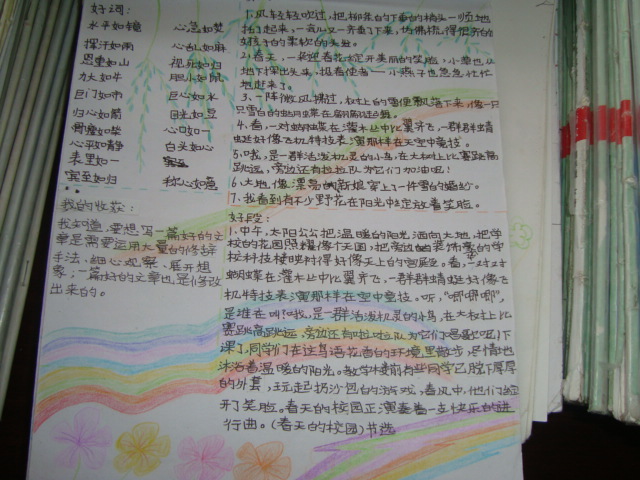 好词：
水平如镜 心急如焚
挥汗如雨 心乱如麻
恩重如山 视死如归
力大如牛 胆小如鼠
巨门如市 巨心如水
归心如箭 目光如豆
骨瘦如柴 心口如一
心平如静 白头如心
表里如一
宾至如归 称心如意
我的收获：
我知道，要想写一篇好的文
章是需要运用大量的修辞
手法、细心观察、展开想
象；一篇好的文章也是修改
出来的。
1、风轻轻吹过，把柳条的下垂的梢头一顺地
托了起来，一会儿又一齐垂了下来，仿佛梳得很齐的
女孩子的柔软的头发。
2、春天，一朵迎春花绽开美丽的笑脸，小草也从
地下探出头来，报春使者——小燕子也急急忙忙
地赶来了。
3、一阵微风拂过，杈杜上的雪便飘落下来，像一只
只雪白的蝴蝶在翩翩起舞。
4、看，一对蝴蝶在灌木丛中比翼齐飞，一群群蜻
蜓好像飞机特技表演那样在空中竞技。
5、咦，是一群活泼机灵的小鸟，在大树上比赛跳高
跳远，旁边还有拉拉队为它们加油呢！
6、大地，像漂亮的新娘穿上了一件雪白的婚纱。
7、我看到有不少野花在阳光中绽放着笑脸。
好段：
1、中午，太阳公公把温暖的阳光洒向大地，把学
校的花园照耀像个天国，把旁边的装饰
校村技楼映衬得好像天上的宫殿。看，一对对
蝴蝶在灌木丛中比翼齐飞，一群群蜻蜓好像飞
机特技表演那样在空中竞技。听，“唧唧唧”，
是谁在叫！哦，是一群活泼机灵的小鸟，在大树上比
赛跳高跳远，旁边还有啦啦队为它们喝彩呢！下
课了，同学们在这鸟语花香的环境里散步，尽情地
沐浴着温暖的阳光。教学楼前有些同学已脱下厚厚
的外套，玩起扔沙包的游戏，春风中，他们绽
开了笑脸。春天的校园正演奏着一支快乐的进
行曲。《春天的校园》节选